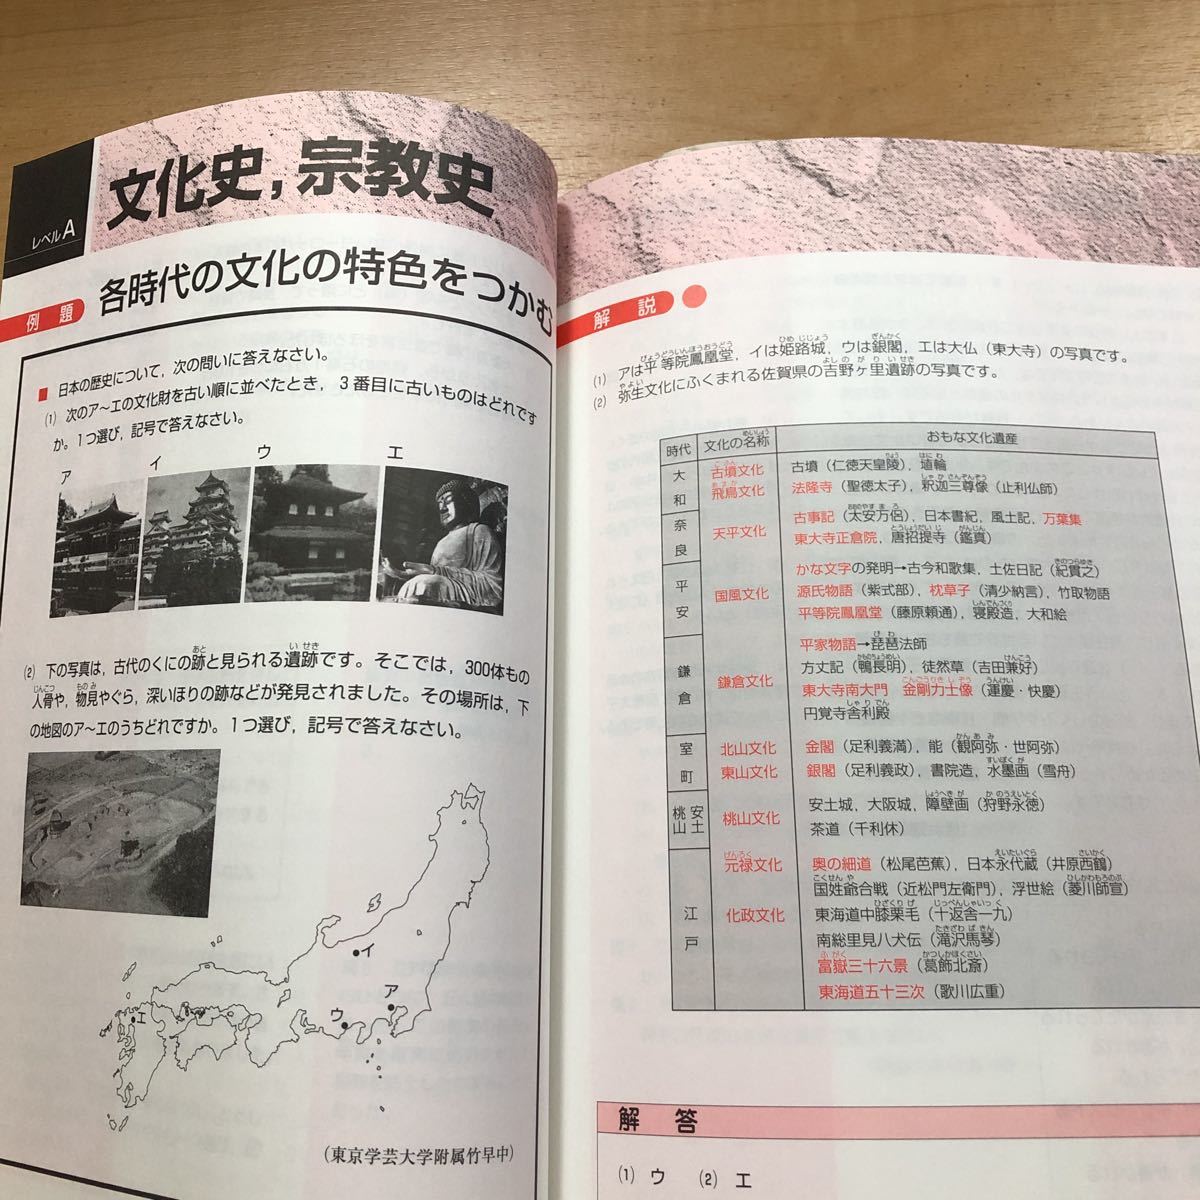 レベルA
文化史,宗教史
例題
各時代の文化の特色をつかむ
■ 日本の歴史について,次の問いに答えなさい。
(1) 次のア〜エの文化財を古い順に並べたとき,3番目に古いものはどれです
か。1つ選び,記号で答えなさい。
ア イ ウ エ
(2) 下の写真は,古代のくにの跡と見られる遺跡です。そこでは,300体もの
人骨や,物見やぐら,深いほりの跡などが発見されました。その場所は,下
の地図のア〜エのうちどれですか。1つ選び,記号で答えなさい。
イ
ア
ウ
エ
(東京学芸大学附属竹早中)
解説
(1) アは平等院鳳凰堂,イは姫路城,ウは銀閣,エは大仏(東大寺)の写真です。
(2) 弥生文化にふくまれる佐賀県の吉野ヶ里遺跡の写真です。
時代 文化の名称 おもな文化遺産
大和 古墳文化 古墳(仁徳天皇陵),埴輪
飛鳥文化 法隆寺(聖徳太子),釈迦三尊像(止利仏師)
奈良 天平文化 古事記(太安万侶),日本書紀,風土記,万葉集
東大寺正倉院,唐招提寺(鑑真)
平安 国風文化 かな文字の発明→古今和歌集,土佐日記(紀貫之)
源氏物語(紫式部),枕草子(清少納言),竹取物語
平等院鳳凰堂(藤原頼通),寝殿造,大和絵
鎌倉 鎌倉文化 平家物語→琵琶法師
方丈記(鴨長明),徒然草(吉田兼好)
東大寺南大門 金剛力士像(運慶・快慶)
円覚寺舎利殿
室町 北山文化 金閣(足利義満),能(観阿弥・世阿弥)
東山文化 銀閣(足利義政),書院造,水墨画(雪舟)
安土桃山 桃山文化 安土城,大阪城,障壁画(狩野永徳)
茶道(千利休)
江戸 元禄文化 奥の細道(松尾芭蕉),日本永代蔵(井原西鶴)
国姓爺合戦(近松門左衛門),浮世絵(菱川師宣)
化政文化 東海道中膝栗毛(十返舎一九)
南総里見八犬伝(滝沢馬琴)
富嶽三十六景(葛飾北斎)
東海道五十三次(歌川広重)
解答
(1) ウ (2) エ